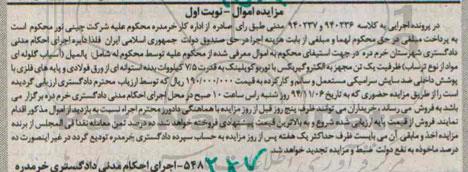 مزایده اموال - نوبت اول
در پرونده اجرایی به کلاسه ۹۴۰۲۳۶ و ۹۴۰۲۳۷ مدنی طبق رای صادره از اداره کار خرمدره محکوم علیه شرکت چینی نور محکوم است
به پرداخت مبلغی در حق محکوم لهما و مبلغی از بابت هزینه اجرا در حق صندوق دولت جمهوری اسلامی ایران لذا اجرای احکام مدنی
دادگستری شهرستان خرم دره در جهت استیفای محکوم به اموال معرفی شده از محکوم علیه توسط محکوم له شامل: یک آسیاب گلوله ای
مواد از نوع ظرفیت یک تن مجهز به الکتروگیربکس با توربوکوپلینگ به قدرت ۷/۵ کیلووات بدنه استوانه ای ورق فولادی و پایه های فلزی با
پوشش داخلی ضد سایش سرامیکی مستعمل و سالم و کارکرده به قیمت ۱۹۰/۰۰۰/۰۰۰ ریال که توسط ارزیاب محترم دادگستری ارزیابی گردیده
است را از طریق مزایده حضوری که به تاریخ ۹۴/۱۱/۰۶ روز شنبه راس ساعت ۱۰ صبح در محل اجرای احکام مدنی دادگستری خرم دره برگزار می
باشد به فروش می رساند، خریداران می توانند ظرف پنج روز قبل از روز مزایده با هماهنگی دادورز محترم اجراء نسبت به بازدید از اموال مذکور اقدام
نمایند. فروش از قیمت پایه ارزیابی شده شروع و به بالاترین قیمت پیشنهادی فروخته خواهد شد ده درصد ثمن معامله نقدا فی المجلس از برنده
مزایده اخذ و مابقی آن می بایست ظرف حداکثر یک هفته پس از روز مزایده به حساب سپرده دادگستری خرمدره تودیع گردد در غیر اینصورت ده
درصد ماخوذه به نفع دولت ضبط و مزایده تجدید خواهد شد.
۵۴۸- اجرای احکام مدنی دادگستری خرمدره